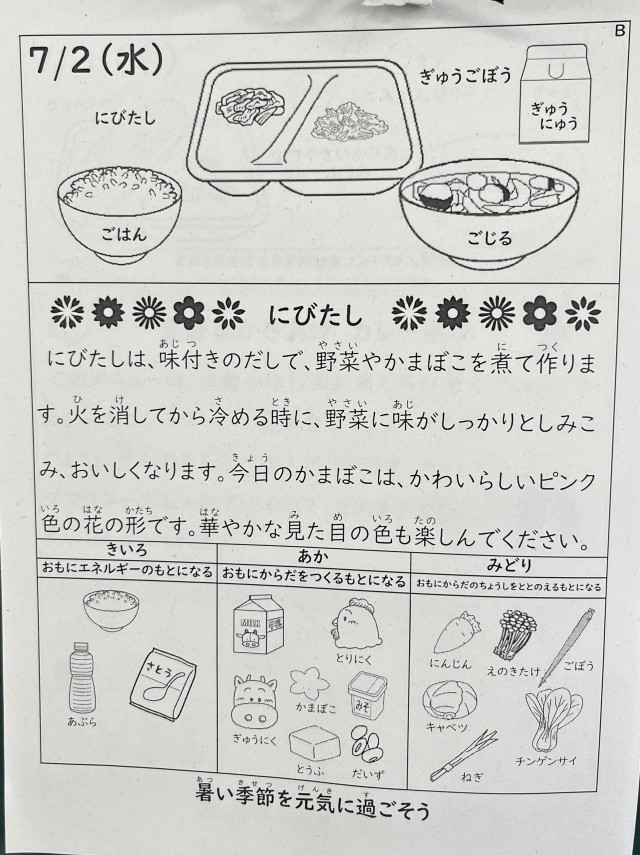 B
7/2(水)
ぎゅうごぼう
ぎゅう
にゅう
にびたし
ごはん
ごじる
にびたし
にびたしは、味付きのだしで、野菜やかまぼこを煮て作りま
す。火を消してから冷める時に、野菜に味がしっかりとしみこ
み、おいしくなります。今日のかまぼこは、かわいらしいピンク
色の花の形です。華やかな見た目の色も楽しんでください。
きいろ
あか
みどり
おもにエネルギーのもとになる
おもにからだをつくるもとになる
おもにからだのちょうしをととのえるもとになる
あぶら
さとう
とりにく
ぎゅうにく
かまぼこ
みそ
とうふ
だいず
にんじん
えのきたけ
ごぼう
キャベツ
チンゲンサイ
ねぎ
暑い季節を元気に過ごそう